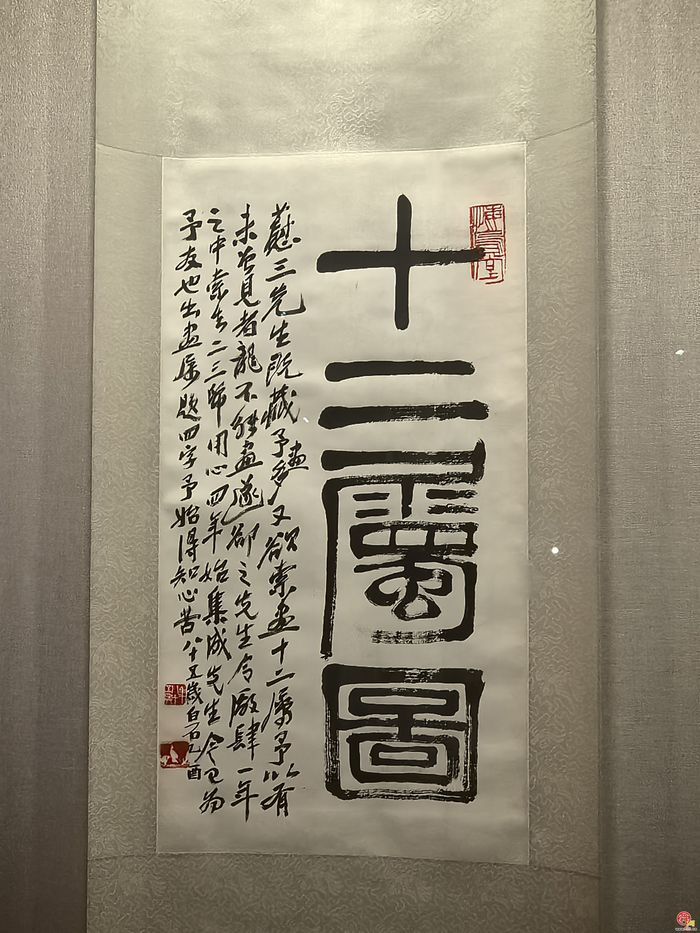 悔烏堂
十二屬圖
三先生既藏予畫多又欲索畫十二屬予以有
未曾見者龍不能畫遂卻之先生令廠肆一年
之中索去二三幀用心四年始集成先生今已為
予友也出畫屬題四字予始得知心苦八十五歲白石乙酉